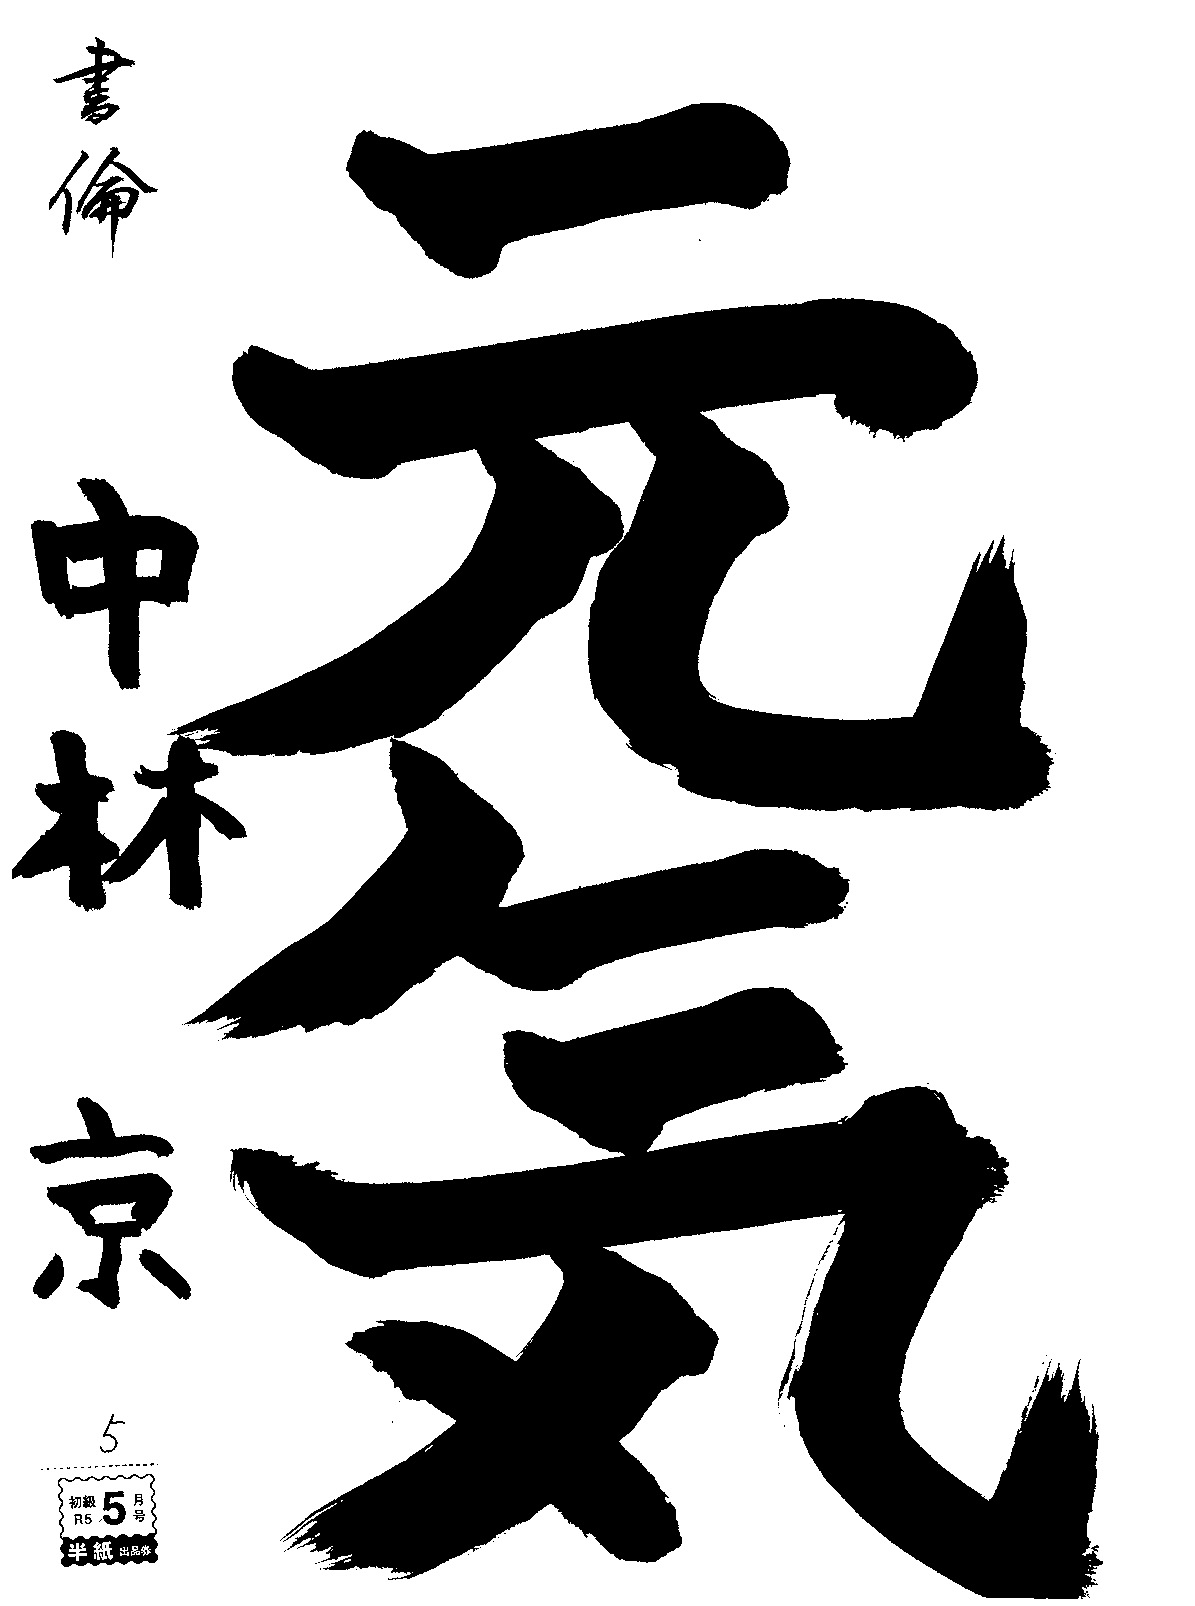 元気
書倫
中林
京
5
初級
R5
5
月号
半紙 出品券